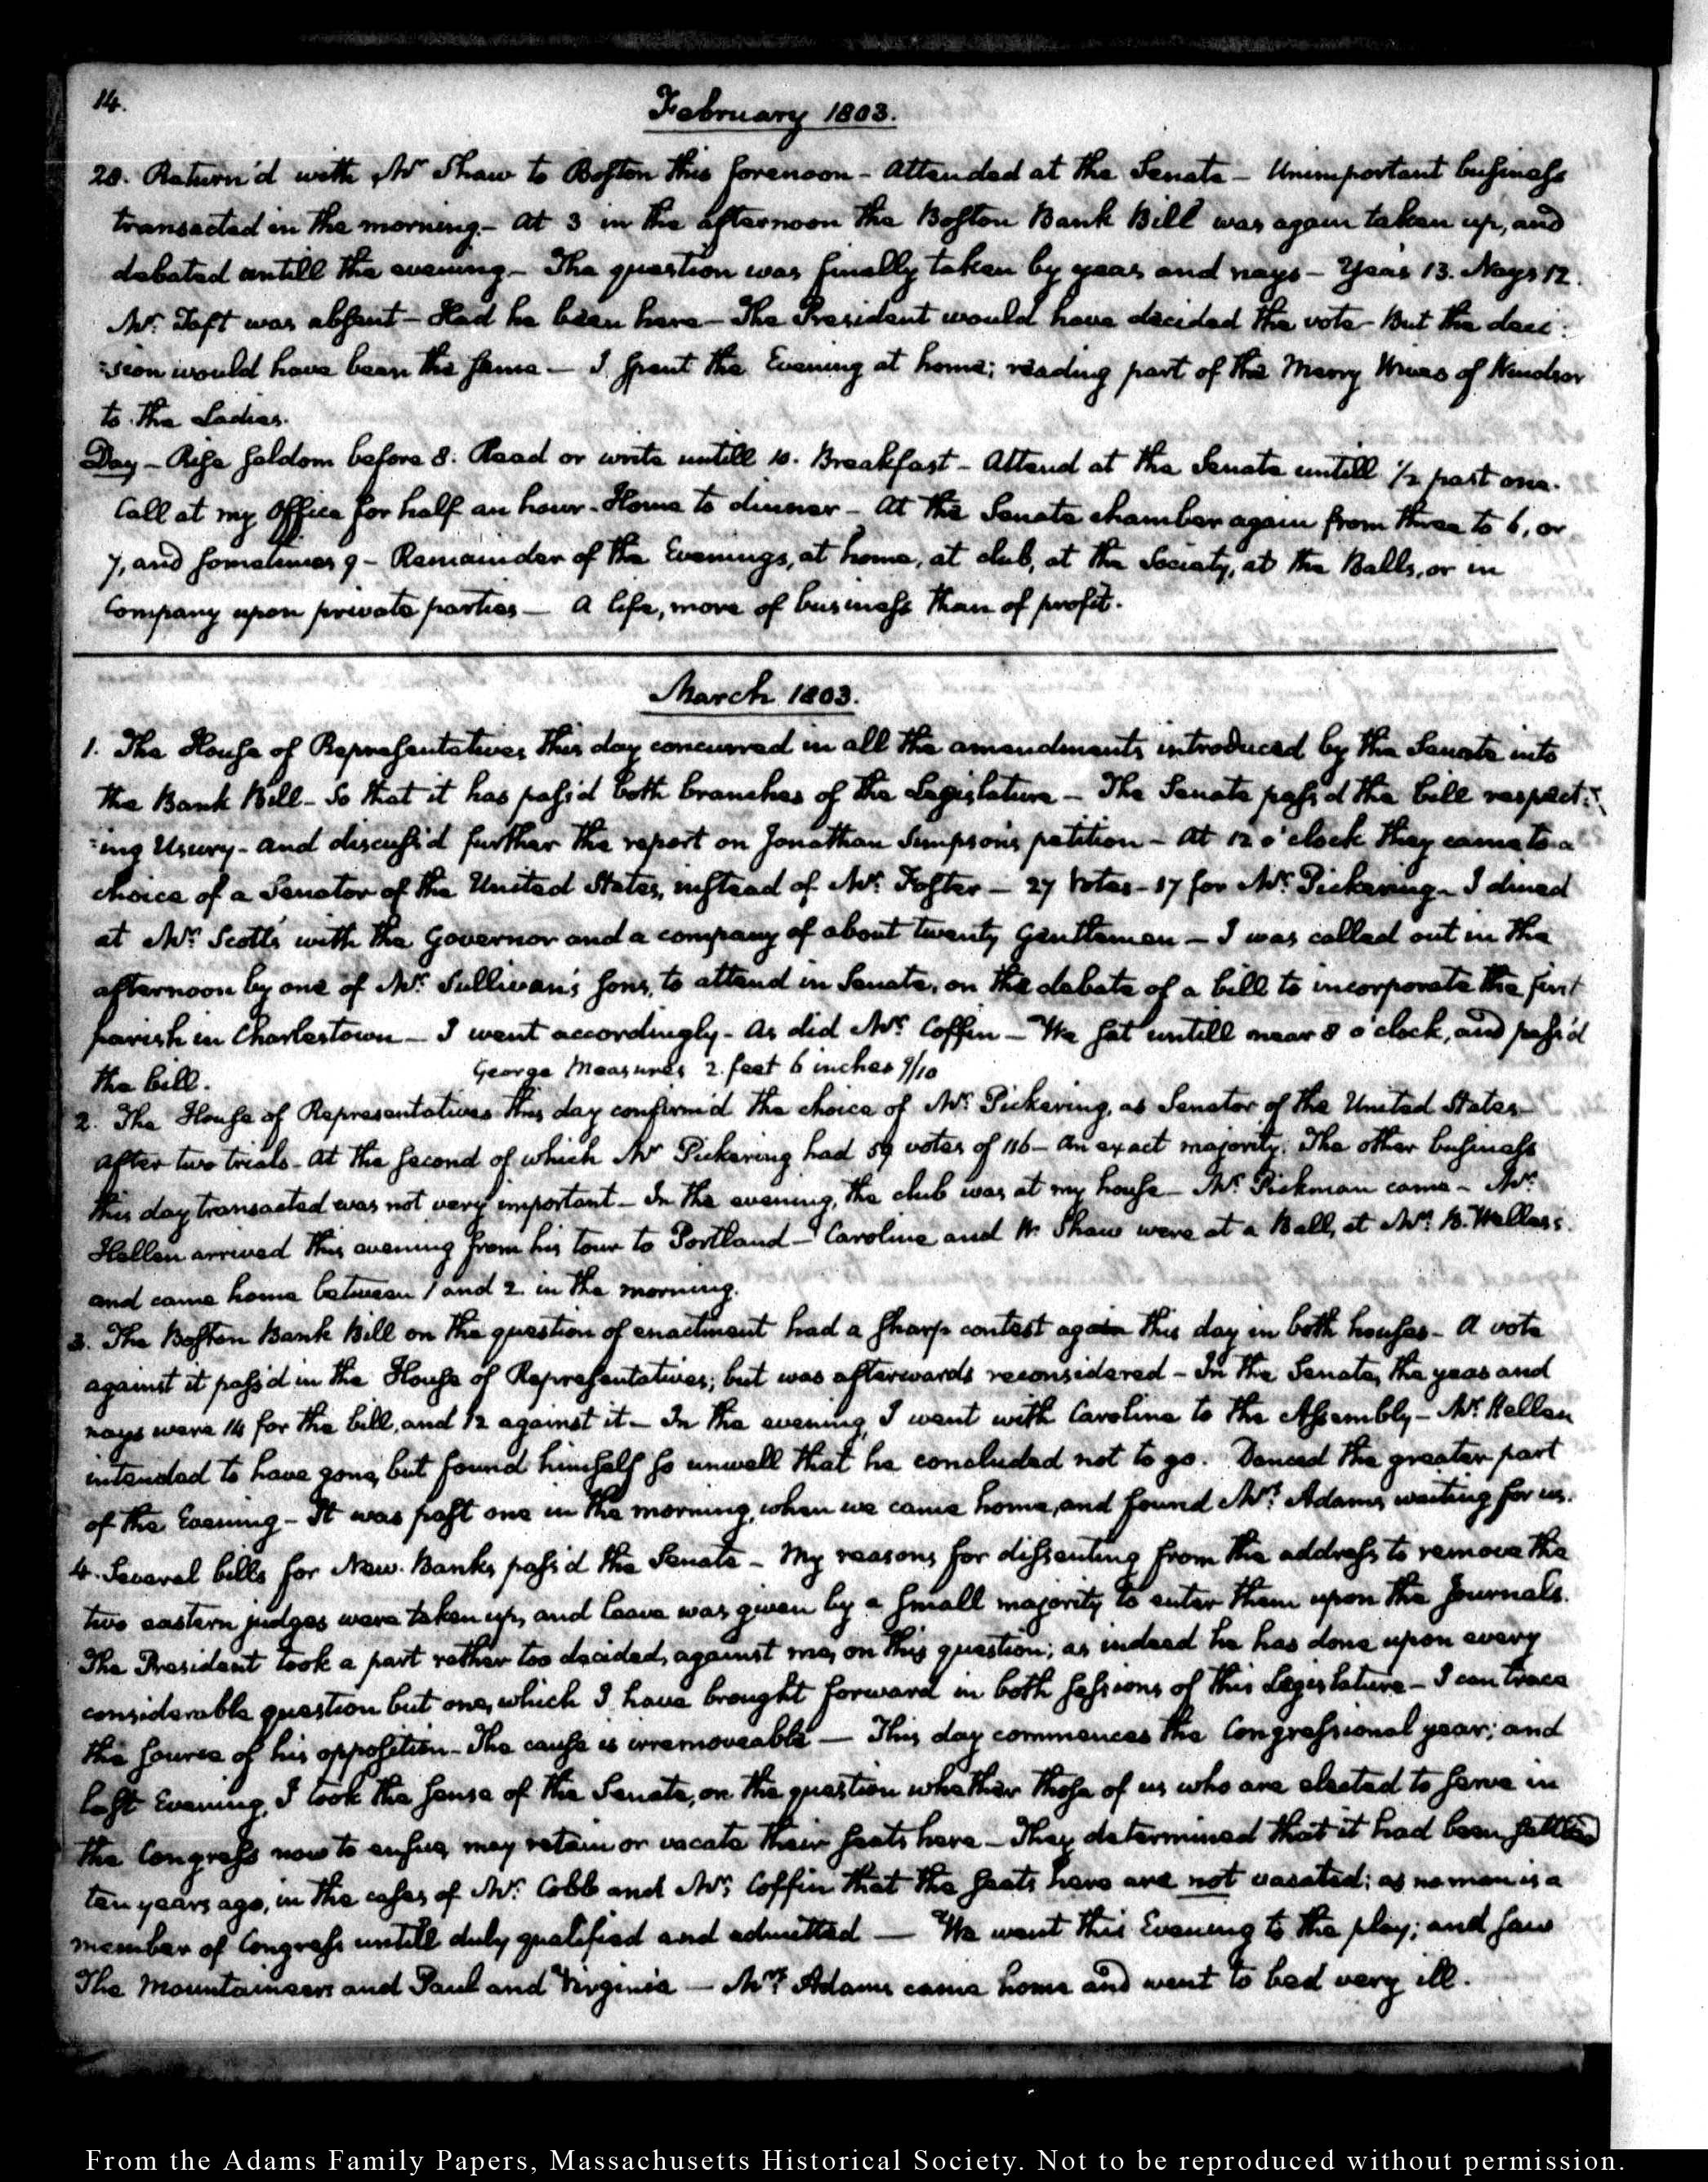 14.
February 1803.
28. Return'd with Mr Shaw to Boston this forenoon - Attended at the Senate - Unimportant business
transacted in the morning - At 3 in the afternoon the Boston Bank Bill was again taken up, and
debated untill the evening - The question was finally taken by yeas and nays - Yeas 13. Nays 12.
Mr. Taft was absent - Had he been here - The President would have decided the vote - But the deci:
:sion would have been the same - I spent the Evening at home; reading part of the Merry Wives of Windsor
to the Ladies.
Day - Rise seldom before 8. Read or write untill 10. Breakfast - Attend at the Senate untill 1/2 past one.
Call at my Office for half an hour - Home to dinner - At the Senate chamber again from three to 6, or
7, and sometimes 9 - Remainder of the Evenings, at home, at club, at the Society, at the Balls, or in
Company upon private parties - A life, more of business than of profit.
March 1803.
1. The House of Representatives this day concurred in all the amendments introduced by the Senate into
the Bank Bill - So that it has pass'd both branches of the Legislature - The Senate pass'd the bill respect:
:ing Usury - and discuss'd further the report on Jonathan Simpson's petition - At 12 o'clock they came to a
choice of a Senator of the United States, instead of Mr. Foster - 27 Votes - 17 for Mr. Pickering - I dined
at Mr. Scott's with the Governor and a company of about twenty Gentlemen - I was called out in the
afternoon by one of Mr. Sullivan's sons, to attend in Senate, on the debate of a bill to incorporate the first
parish in Charlestown - I went accordingly - As did Mr. Coffin - We sat untill near 8 o'clock, and pass'd
the bill.
George Measures 2 feet 6 inches 9/10
2. The House of Representatives this day confirm'd the choice of Mr. Pickering, as Senator of the United States -
After two trials - At the second of which Mr Pickering had 59 votes of 116 - An exact majority. The other business
this day transacted was not very important - In the evening, the club was at my house - Mr. Pickman came - Mr.
Hellen arrived this evening from his tour to Portland - Caroline and W. Shaw were at a Ball, at Mrs. B. Welles's.
and came home between 1 and 2 in the morning.
3. The Boston Bank Bill on the question of enactment had a sharp contest again this day in both houses - A vote
against it pass'd in the House of Representatives; but was afterwards reconsidered - In the Senate, the yeas and
nays were 14 for the bill, and 12 against it - In the evening, I went with Caroline to the Assembly - Mr. Hellen
intended to have gone, but found himself so unwell that he concluded not to go. Danced the greater part
of the Evening - It was past one in the morning, when we came home, and found Mrs. Adams waiting for us.
4. Several bills for New Banks pass'd the Senate - My reasons for dissenting from the address to remove the
two eastern judges were taken up, and leave was given by a small majority to enter them upon the Journals.
The President took a part rather too decided, against me, on this question; as indeed he has done upon every
considerable question but one, which I have brought forward in both sessions of this Legislature - I can trace
the source of his opposition - The cause is irremoveable - This day commences the Congressional year; and
last Evening, I took the sense of the Senate, on the question whether those of us who are elected to serve in
the Congress now to ensue, may retain or vacate their seats here - They determined that it had been settled
ten years ago, in the cases of Mr. Cobb and Mr. Coffin that the seats here are not vacated; as no man is a
member of Congress untill duly qualified and admitted - We went this Evening to the play; and saw
The Mountaineers and Paul and Virginia - Mrs. Adams came home and went to bed very ill.
From the Adams Family Papers, Massachusetts Historical Society. Not to be reproduced without permission.